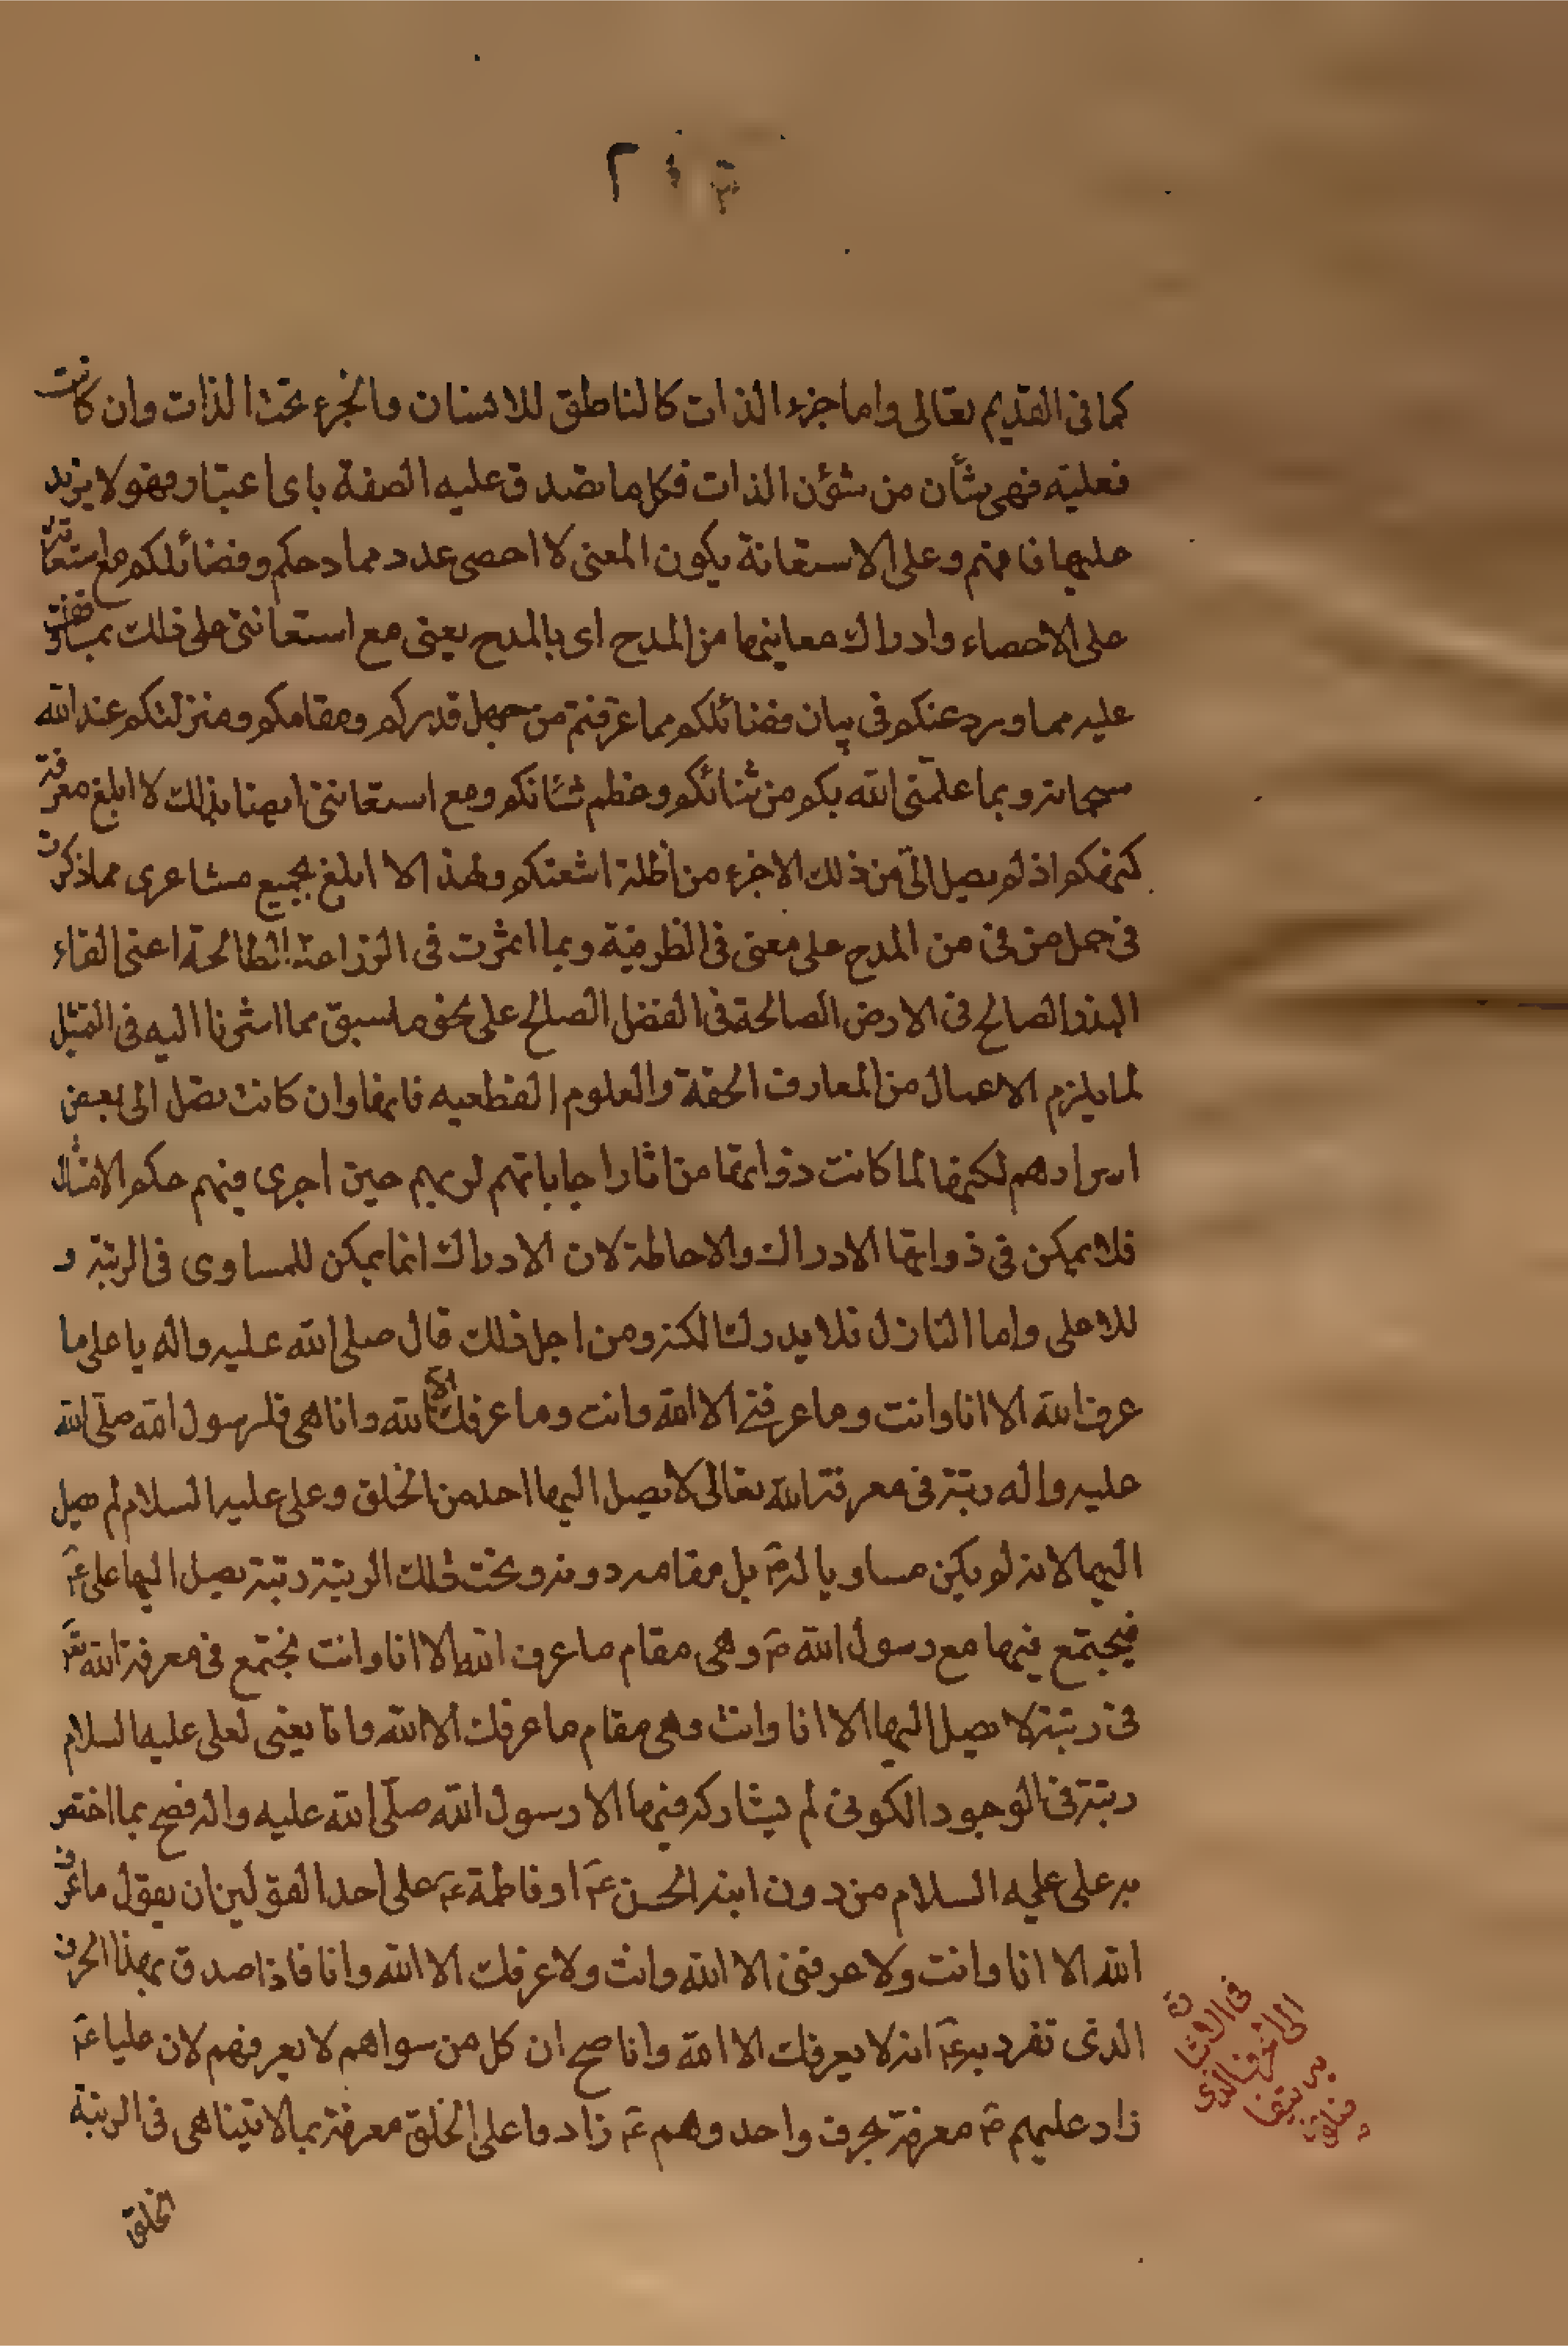 كما فى القديم تعالى واما جزء الذات كالناطق للانسان والجزء تحت الذات وان كانت
فعليته فهى شأن من شؤن الذات فكل ما تصدق عليه الصفة باى اعتبار فهو لا يزيد
عليها فافهم وعلى الاستعانة يكون المعنى لا احصى عدد مما دحكم وفضائلكم مع استعانتى
على الاحصاء وادراك معاينها من المدح اى بالمدح يعنى مع استعانتى على ذلك بما وقفت
عليه مما ورد عنكم فى بيان فضائلكم مما عرفتم من جهل قدركم ومقامكم ومنزلتكم عند الله
سبحانه وبما علمنى الله بكم من ثنائكم وعظم شانكم ومع استعانتى ايضا بذلك لا ابلغ معرفة
كنهكم اذ لم يصل الىّ من ذلك الا جزء من اظلة اشعتكم ولهذا لا ابلغ بجميع مشاعرى مما ذكرت
فى جمل من فى من المدح على معنى فى الظرفية وبما اثمرت فى الزراعة الصالحة اعنى القاء
البذر الصالح فى الارض الصالحة فى الفضل الصالح على نحو ما سبق مما اشرنا اليه فى القبل
لما يلزم الاعمال من المعارف الحقة والعلوم القطعيه فانها وان كانت تصل الى بعض
اسرارهم لكنها لما كانت ذواتها من اثار اجاباتهم لربهم حين اجرى فيهم حكم الامثال
فلا يمكن فى ذواتها الادراك والاحاطة لان الادراك انما يمكن للمساوى فى الرتبة و
للاعلى واما النازل فلا يدرك الكنه ومن اجل ذلك قال صلى الله عليه واله يا على ما
عرف الله الا انا وانت وما عرفنى الا الله وانت وما عرفك الا الله وانا هى فلرسول الله صلّى الله
عليه واله رتبة فى معرفة الله تعالى لا يصل اليها احد من الخلق وعلى عليه السلام لم يصل
اليها لانه لم يكن مساويا له ص بل مقامه دونه وتحت تلك الرتبة رتبة يصل اليها على ع
فيجتمع فيها مع رسول الله ص وهى مقام ما عرف الله الا انا وانت نجتمع فى معرفة الله تع
فى رتبة لا يصل اليها الا انا وانت وهى مقام ما عرفك الا الله وانا يعنى لعلى عليه السلام
رتبة فى الوجود الكونى لم يشاركه فيها الا رسول الله صلّى الله عليه واله فصح بما اختص
به على عليه السلام من دون ابنه الحسن ع او فاطمة ع على احد القولين ان يقول ما عرف
الله الا انا وانت ولا عرفنى الا الله وانت ولا عرفك الا الله وانا فاذا صدق بهذا الحرف
الذى تفرد به ع انه لا يعرفك الا الله وانا صح ان كل من سواهم لا يعرفهم لان عليا ع
زاد عليهم ع معرفة بحرف واحد وهم ع زادوا على الخلق معرفة بما لا يتناهى فى الرتبة
الخلق